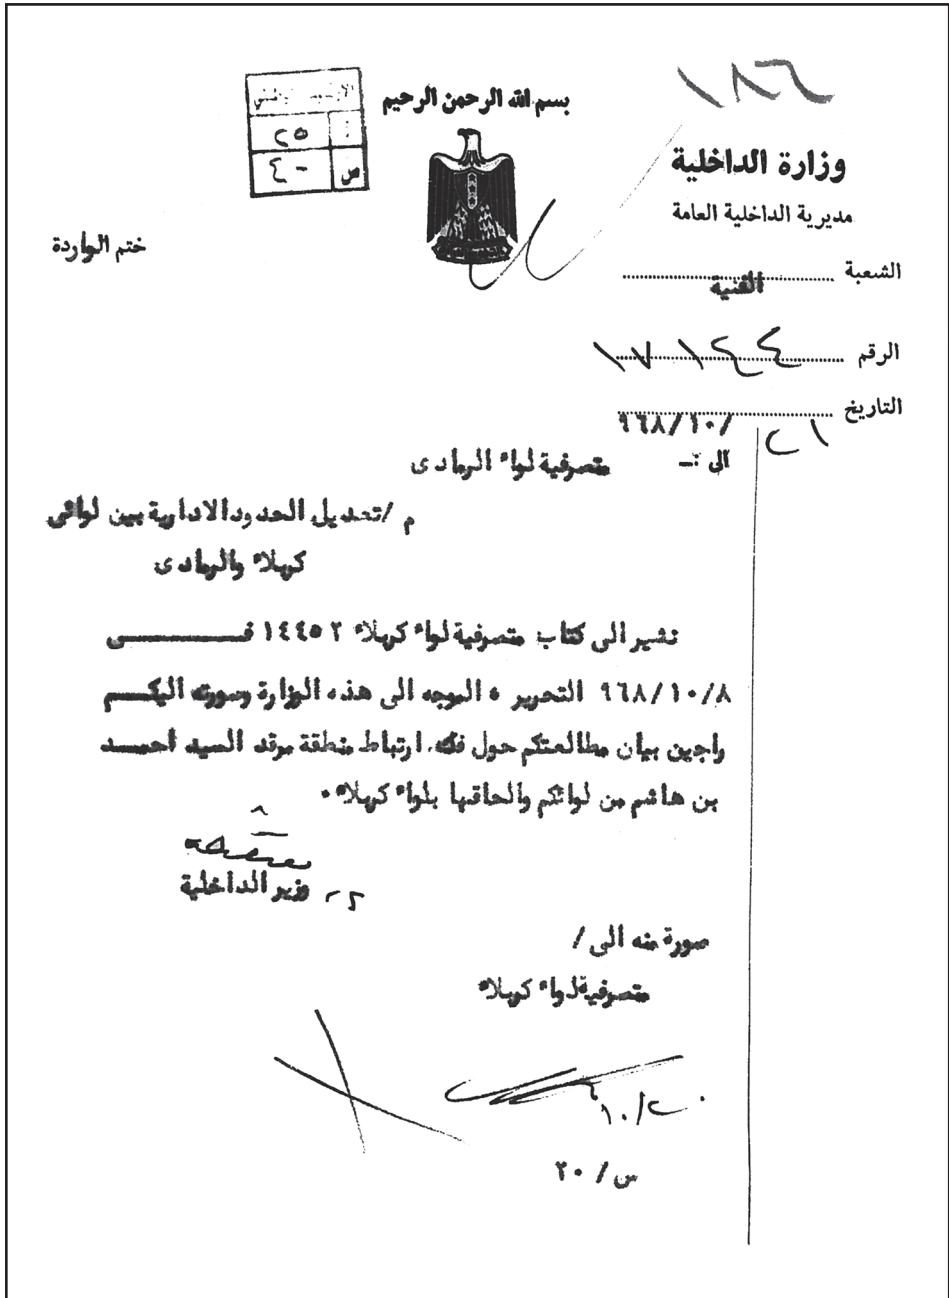 ٦٨١
بسم الله الرحمن الرحيم
٢٥
ص ٤٠
وزارة الداخلية
مديرية الداخلية العامة
ختم الواردة
الشعبة الفنية
الرقم
التاريخ ٢١ /٩٦٨/١٠
الى :ـ متصرفية لواء الرمادى
م /تعديل الحدود الادارية بين لوائي
كربلاء والرمادى
نشير الى كتاب متصرفية لواء كربلاء ١٤٤٥٢ فـــــــى
٩٦٨/١٠/٨ التحرير ، الموجه الى هذه الوزارة وصورته اليكـــم
راجين بيان مطالعتكم حول فك ارتباط منطقة مرقد السيد أحمـــد
بن هاشم من لوائكم والحاقها بلواء كربلاء .
وزير الداخلية
صورة منه الى /
متصرفية لواء كربلاء
١٠/٢٠
س / ٢٠